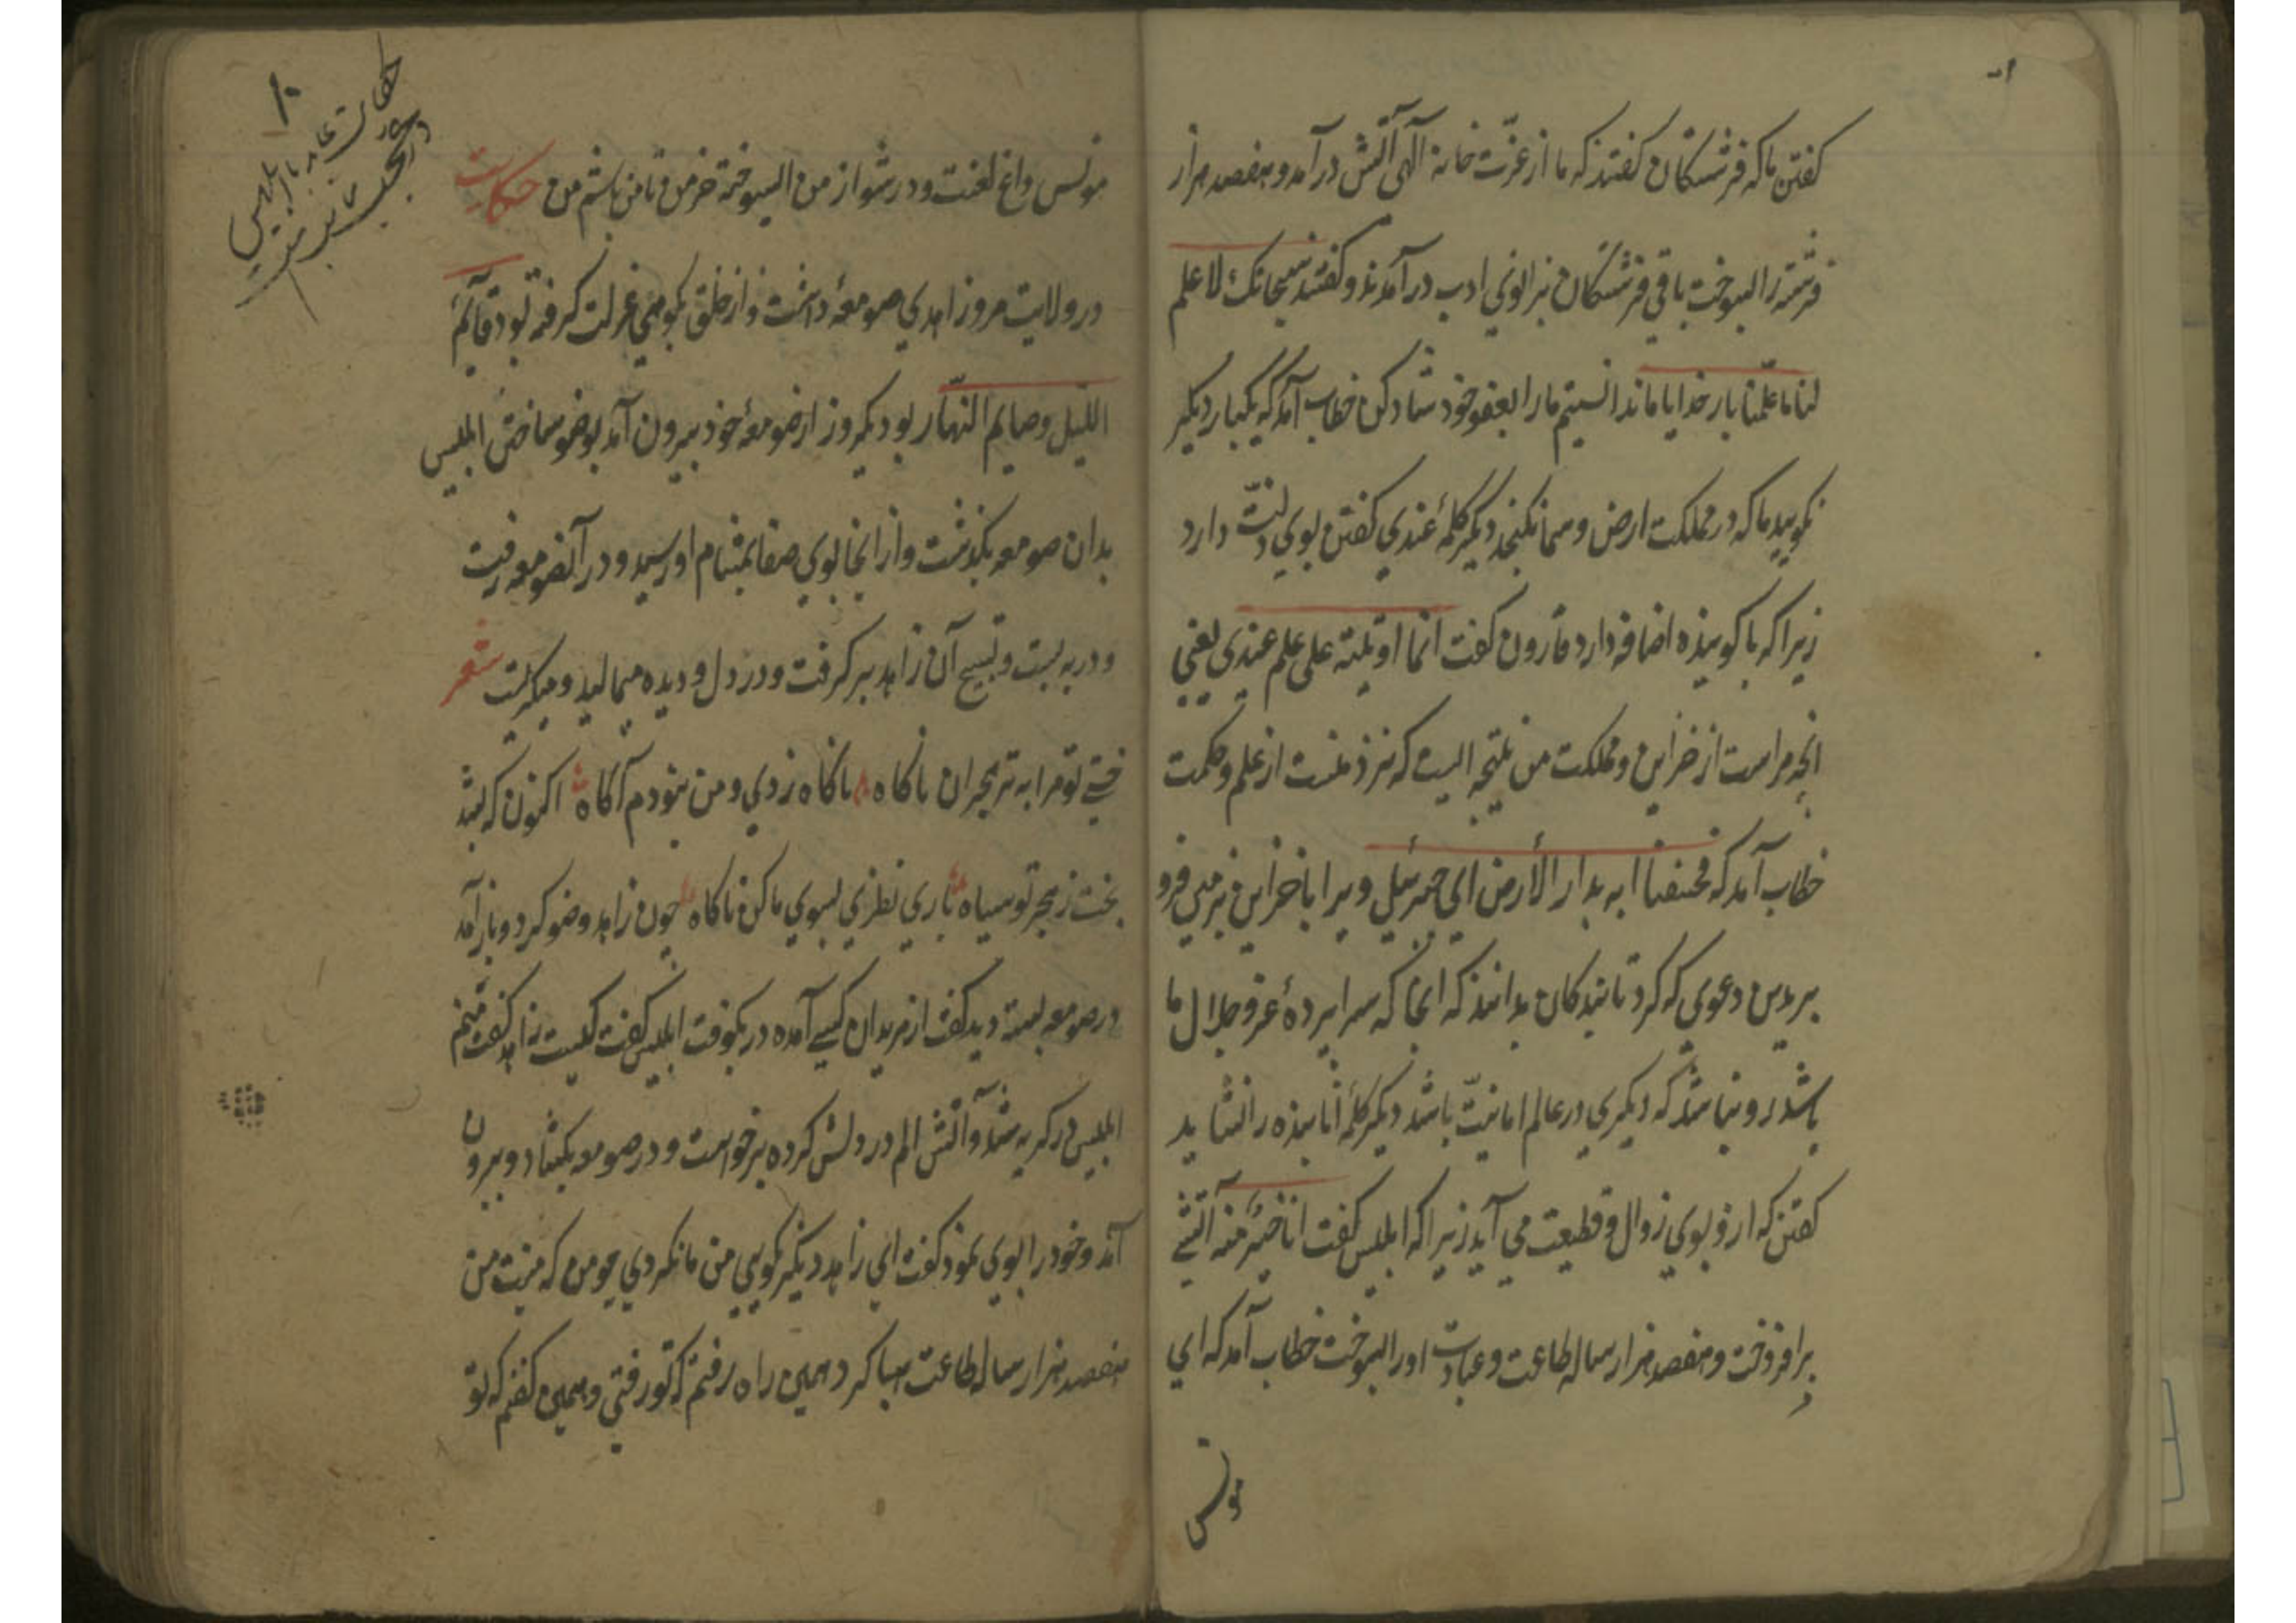 گفتن ما که فرشتگان گفتند که ما از عزّت خانهٔ آلهی آتش درآمد و هفصد هزار
فرشته را بسوخت باقی فرشتگان بزانوی ادب درآمدند و گفتند سبحانک لا علم
لنا ما علّمتنا بار خدایا ما ندانستیم ما را بعفو خود شاد کن خطاب آمد که یکبار دیگر
نگویید ما که در مملکت ارض و سما نگنجد دیگر کلمهٔ عندی گفتن بوی دارد
زیرا که با گوینده اضافه دارد قارون گفت انما اوتیته علی علم عندی یعنی
انچه مراست از خزاین و مملکت من نتیجه ایست که نزد منست از علم و حکمت
خطاب آمد که فخسفنا به بداره الأرض ای جبرئیل ویرا با خزاین بزمین فرو
بر بدین دعوی که کرد تا بندگان بدانند که انجا که سراپردهٔ عز و جلال ما
باشد روا نباشد که دیگری در عالم انانیّت باشد دیگر کلمهٔ انا بنده را نشاید
گفتن که ازو بوی زوال و قطیعت می آید زیرا که ابلیس گفت انا خیر منه آتشی
برافروخت و هفصد هزار ساله طاعت و عبادت او را بسوخت خطاب آمد که ای
مونس
۸
حکایت عابد با ابلیس
مونس داغ لعنت و در شو از من ای سوخته خرمن تا من باشم من حکایت
در ولایت مرو زاهدی صومعهٔ داشت و از خلق بگوشهٔ عزلت گرفته بود قائم
اللیل و صایم النهّار بود یکروز از صومعهٔ خود بیرون آمد بوضو ساختن ابلیس
بدان صومعه بگذشت و از انجا بوی صفا بمشام او رسید و در آنصومعه رفت
و در به بست و تسبیح آن زاهد برگرفت و در دل و دیده میمالید و میگریست شعر
خستی تو مرا به تیر هجران ناگاه ناگاه زدی و من نبودم آگاه اکنون که بشد
بخت ز هجر تو سیاه باری نظری بسوی ما کن ناگاه چون زاهد وضو کرد و باز آمد
در صومعه بسته دید گفت از مریدان کسی آمده در بکوفت ابلیس گفت کیست زاهد گفت منم
ابلیس در گریه شد و آتش الم در دلش کرده برخواست و در صومعه بگشاد و بیرون
آمد و خود را بوی نمود گفت ای زاهد دیگر نگویی من تا نگردی چو من که منیت من
هفصد هزار ساله طاعت هبا کرد همین راه رفتم که تو رفتی و همین گفتم که تو